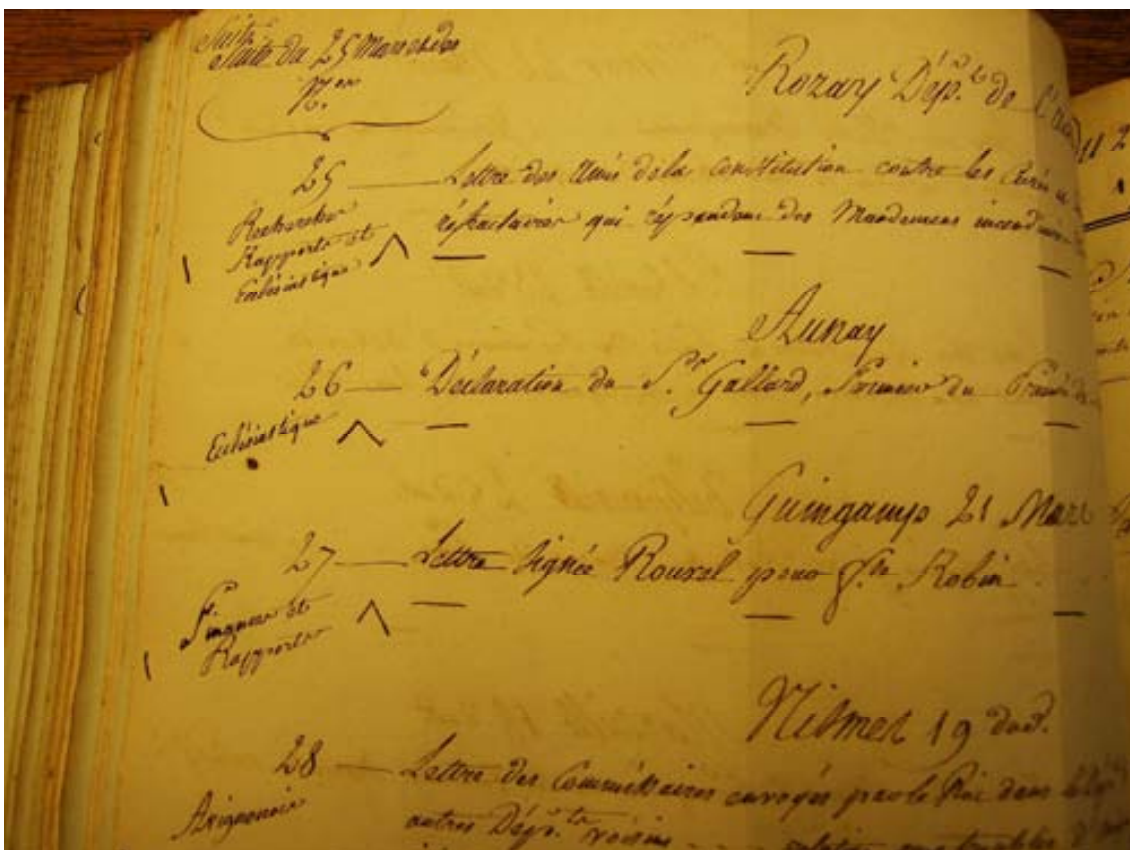 Suite
Suite du 25 Mars et des
N.os
Rozay Dép.t de
25 — Lettre des Amis de la Constitution contre les Curés
Recherches
Rapports et
Ecclésiastique
réfractaires qui répandent des Mandemens incendiaires
Aunay
26 — Déclaration du S.r Gallard, Prémiér du
Ecclésiastique
Guingamp 21 Mars
27 — Lettre signée Rouxel pour Robin
Finances et
Rapports
Nismes 19 dud.
28 — Lettre des Commissaires envoyés par le Roi dans
Avignonois
autres Dép.ts voisins